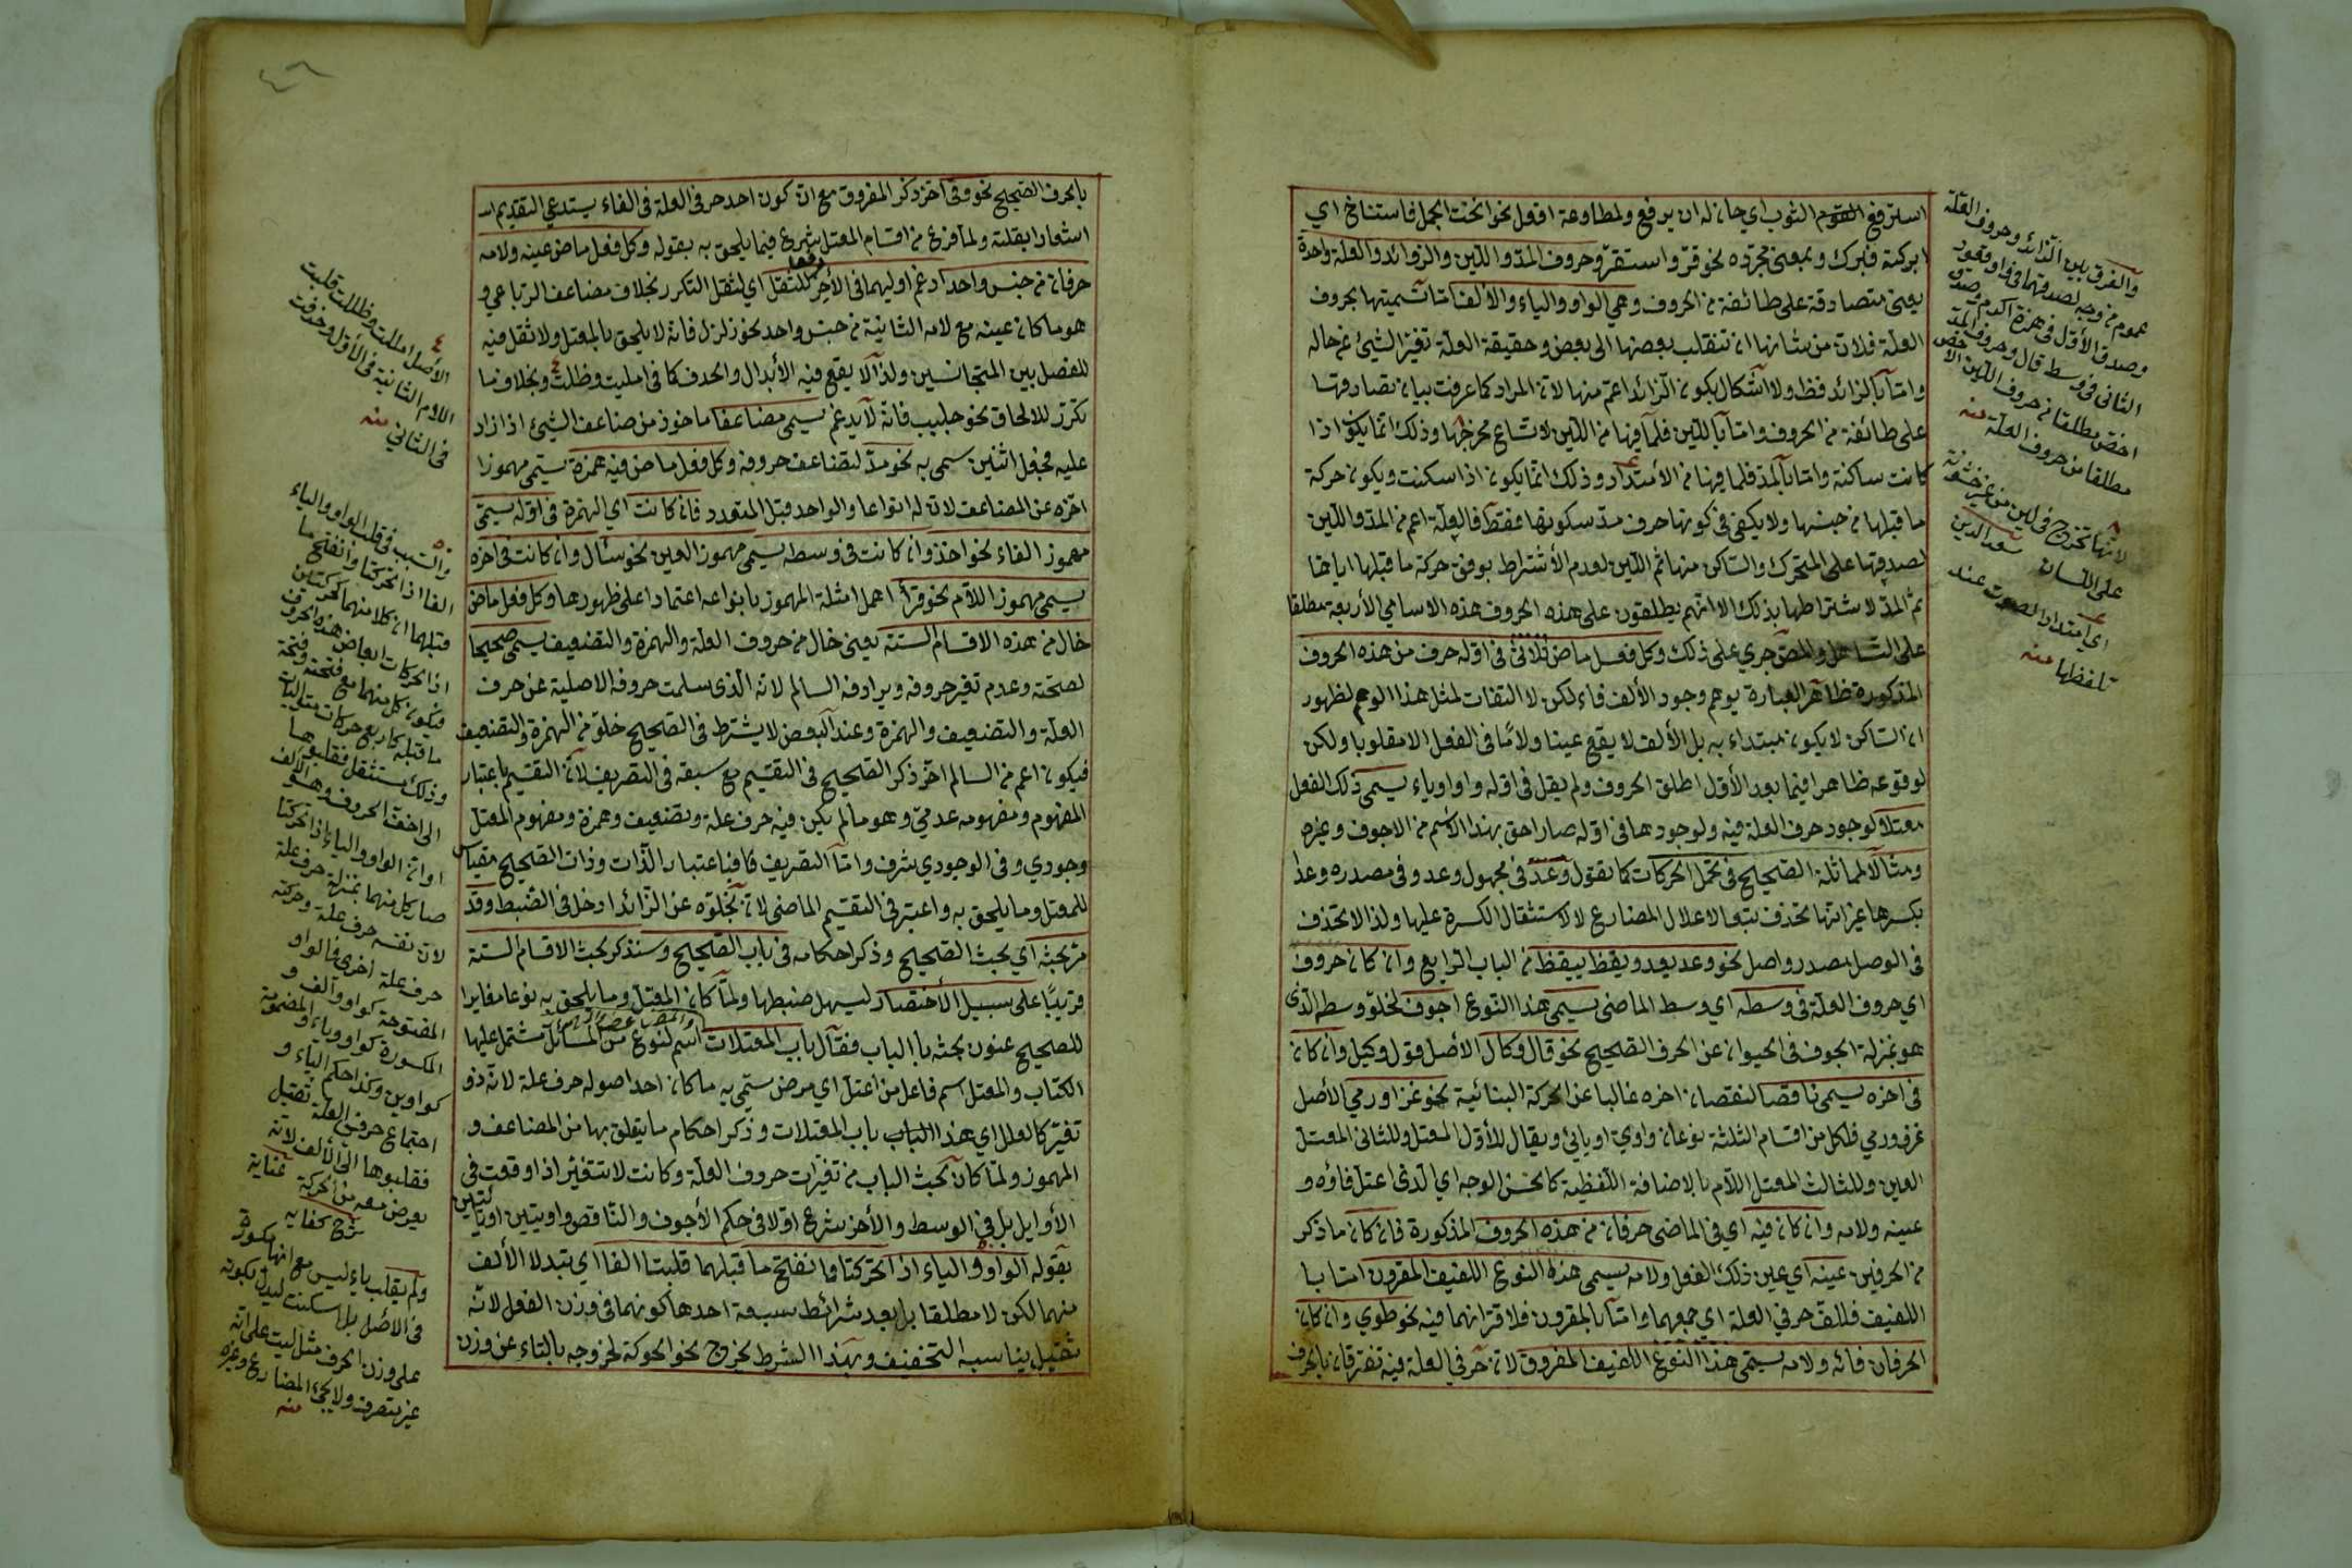 استرقع الثوب اي حان له ان يرقع ولمطاوعة افعل نحو انخت الجمل فاستناخ اي
ابركته فبرك وبمعنى مجرده نحو قرّ واستقرّ وحروف المدّ واللين والزوائد والعلة واحدة
يعنى متصادقة على طائفة من الحروف وهي الواو والياء والألف امّا تسميتها بحروف
العلة فلانّ من شانها ان تنقلب بعضها الى بعض وحقيقة العلة تغيّر الشيئ عن حاله
وامّا بالزائد فظ ولا اشكال بكون الزائد اعمّ منها لانّ المراد كما عرفت بيان تصادقها
على طائفة من الحروف وامّا باللين فلما فيها من اللين لاتساع مخرجها وذلك انما يكون اذا
كانت ساكنة وامّا بالمدّ فلما فيها من الأمتداد وذلك انّما يكون اذا سكنت ويكون حركة
ما قبلها من جنسها ولا يكفى في كونها حرف مدّ سكونها فقط فالعلّة اعم من المدّ واللين
لصدقها على المتحرك والساكن منها ثم اللين لعدم الأشتراط بوفق حركة ما قبلها اياها
ثمّ المدّ لاشتراطها بذلك الا انهم يطلقون على هذه الحروف هذه الاسامي الأربعة مطلقا
على التساهل والمص جرى على ذلك وكل فعل ماض ثلاثى في اوله حرف من هذه الحروف
المذكورة ظاهر العبارة يوهم وجود الألف فاء لكن لا التفات لمثل هذا الوهم لظهور
ان الساكن لا يكون مبتداء به بل الألف لا يقع عينا ولا لامًا فى الفعل الا مقلوبا ولكن
لوقوعه ظاهرا فيما بعد الأول اطلق الحروف ولم يقل فى اوله واو او ياء يسمى ذلك الفعل
معتلا لوجود حرف العلة فيه ولوجودها فى اوّله صار احق بهذا الأسم من الاجوف وغيره
ومثالا لمماثلة الصحيح فى تحمّل الحركات كما تقول وَعَدَ فى مجهول وعد وفى مصدره وعدا
بكسرها غير انها تحذف تبعا لاعلال المضارع لا لاستثقال الكسرة عليها ولذا لا تحذف
فى الوصل مصدر واصل نحو وعد يعد ويقظ ييقظ من الباب الرابع وان كان حروف
اي حروف العلة فى وسطه اي وسط الماضى يسمى هذا النوع اجوف لخلوّ وسطه الذى
هو بمنزلة الجوف فى الحيوان عن الحرف الصحيح نحو قال وكال الأصل قول وكيل وان كان
فى اخره يسمى ناقصا لنقصان اخره غالبا عن الحركة البنائية نحو غزا ورمي الأصل
غزو ورمي فلكل من اقسام الثلثة نوعان واويّ او يائيّ ويقال للأول المعتل وللثانى المعتل
العين وللثالث المعتل اللام بالاضافة اللفظية كالحسن الوجه اي الذى اعتل فاؤه و
عينه ولامه وان كان فيه اي فى الماضى حرفان من هذه الحروف المذكورة فان كان ما ذكر
من الحرفين عينه اي عين ذلك الفعل ولامه يسمى هذه النوع اللفيف المقرون امّا با
اللفيف فللفّ حرفي العلة اي جمعهما وامّا بالمقرون فلاقترانهما فيه نحو طوي وان كان
الحرفان فائه ولامه يسمّى هذا النوع اللفيف المفروق لانّ حرفي العلة فيه تفترقان بالحرف
والفرق بين الزائد وحروف العلة
عموم من وجه لصدقهما فى واو قعود
وصدق الأول فى همزة اكرم وصدق
الثانى فى وسط قال وحروف المدّ
اخصّ مطلقا من حروف اللين الاخص
مطلقا من حروف العلة منه
لانها تخرج فى لين من غير خشونة
على اللسان سعد الدين
اي امتداد الصوت عند
تلفظها منه
بالحرف الصحيح نحو وقى اخّر ذكر المفروق مع انّ كون احد حرفى العلة فى الفاء يستدعي التقديم
اشعارا بقلته ولما فرغ من اقسام المعتل شرع فيما يلحق به بقوله وكل فعل ماض عينه ولامه
حرفان من جنس واحد ادغم اوليهما فى الأخر للثقل اي لثقل التكرر بخلاف مضاعف الرباعي و
هو ما كان عينه مع لامه الثانية من جنس واحد نحو زلزل فانّه لا يلحق بالمعتل ولا ثقل فيه
للفصل بين المتجانسين ولذا لا يقع فيه الأبدال والحذف كما فى امليت وظلت وبخلاف ما
تكرّر للالحاق نحو جلبب فانّه لا يدغم يسمى مضاعفا ماخوذ من ضاعف الشيئ اذا زاد
عليه فجعل اثنين سمى به نحو مدّ لتضاعف حروفه وكل فعل ماض فيه همزة يسمى مهموزا
اخّره عن المضاعف لان له انواعا والواحد قبل المتعدد فان كانت اي الهمزة فى اوّله يسمّى
مهموز الفاء نحو اخذ وان كانت فى وسطه يسمى مهموز العين نحو سئال وان كانت فى اخره
يسمى مهموز اللام نحو قرأ اهمل امثلة المهموز بانواعه اعتمادا على ظهورها وكل فعل ماض
خال من هذه الاقسام الستة يعنى خال من حروف العلة والهمزة والتضعيف يسمى صحيحا
لصحته وعدم تغير حروفه ويرادفه السالم لانه الذى سلمت حروفه الاصلية عن حرف
العلة والتضعيف والهمزة وعند البعض لا يشترط فى الصحيح خلوّه من الهمزة والتضعيف
فيكون اعم من السالم اخّر ذكر الصحيح فى التقسيم مع سبقه فى التعريف لانّ التقسيم باعتبار
المفهوم ومفهومه عدمىّ وهو ما لم يكن فيه حرف علة وتضعيف وهمزة ومفهوم المعتل
وجودي وفى الوجودي شرف وامّا التعريف فباعتبار الذات وذات الصحيح مقياس
للمعتل وما يلحق به واعتبر فى التقسيم الماضى لانّ بخلوّه عن الزائد ادخل فى الضبط وقد
مرّ بحثه اي بحث الصحيح وذكر احكامه فى باب الصحيح وسنذكر بحث الاقسام الستة
قريبًا على سبيل الأختصار ليسهل ضبطها ولمّا كان المعتل وما يلحق به نوعا مغايرا
للصحيح عنون بحثه بالباب فقال باب المعتلات اسم لنوع من المسائل مشتمل عليها
الكتاب والمعتل اسم فاعل من اعتل اي مرض سمّى به ما كان احد اصوله حرف علة لانه ذو
تغيّر كالعلل اي هذا الباب باب المعتلات وذكر احكام ما يتعلق بها من المضاعف و
المهموز ولمّا كان بحث الباب من تغيّرات حروف العلة وكانت لا تتغيّر اذا وقعت فى
الأوايل بل فى الوسط والأخر شرع اوّلا فى حكم الأجوف والناقص واويين او يائيين
بقوله الواو والياء اذا تحركتا وانفتح ما قبلهما قلبتا الفا اي تبدلا الألف
منهما لكن لا مطلقا بل بعد شرائط سبعة احدها كونهما فى وزن الفعل لانّه
ثقيل يناسبه التخفيف وبهذا الشرط يخرج نحو الحوكة لخروجه بالتاء عن وزن
الأصل امللت وظللت قلبت
اللام الثانية فى الأول وحذفت
فى الثاني منه
والسبب فى قلب الواو والياء
الفا اذا تحركتا وانفتح ما
قبلهما ان كلا منهما كحركتين
اذ الحركات ابعاض هذه الحروف
فيكون كل منهما مع فتحته وفتحة
ما قبله كاربع حركات متواليات
وذلك مستثقل فقلبوها
الى اخف الحروف وهو الألف
او ان الواو والياء اذا تحركتا
صار كل منهما بمنزلة حرفى علة
لان نفسه حرف علة وحركته
حرف علة اخرى فالواو
المفتوحة كواو والف و
المكسورة كواو وياء والمضمومة
كواوين وكذا حكم الياء و
اجتماع حرفى العلة ثقيل
فقلبوها الى الألف لانه
يعرض معه من الحركة عناية
شرح كفايه
ولم يقلب ياء ليس مع انها مكسورة
فى الأصل بل اسكنت ليدل بكونه
على وزن الحرف مثل ليت على انّه
غير متصرف ولا يجئ المضارع وغيره
منه